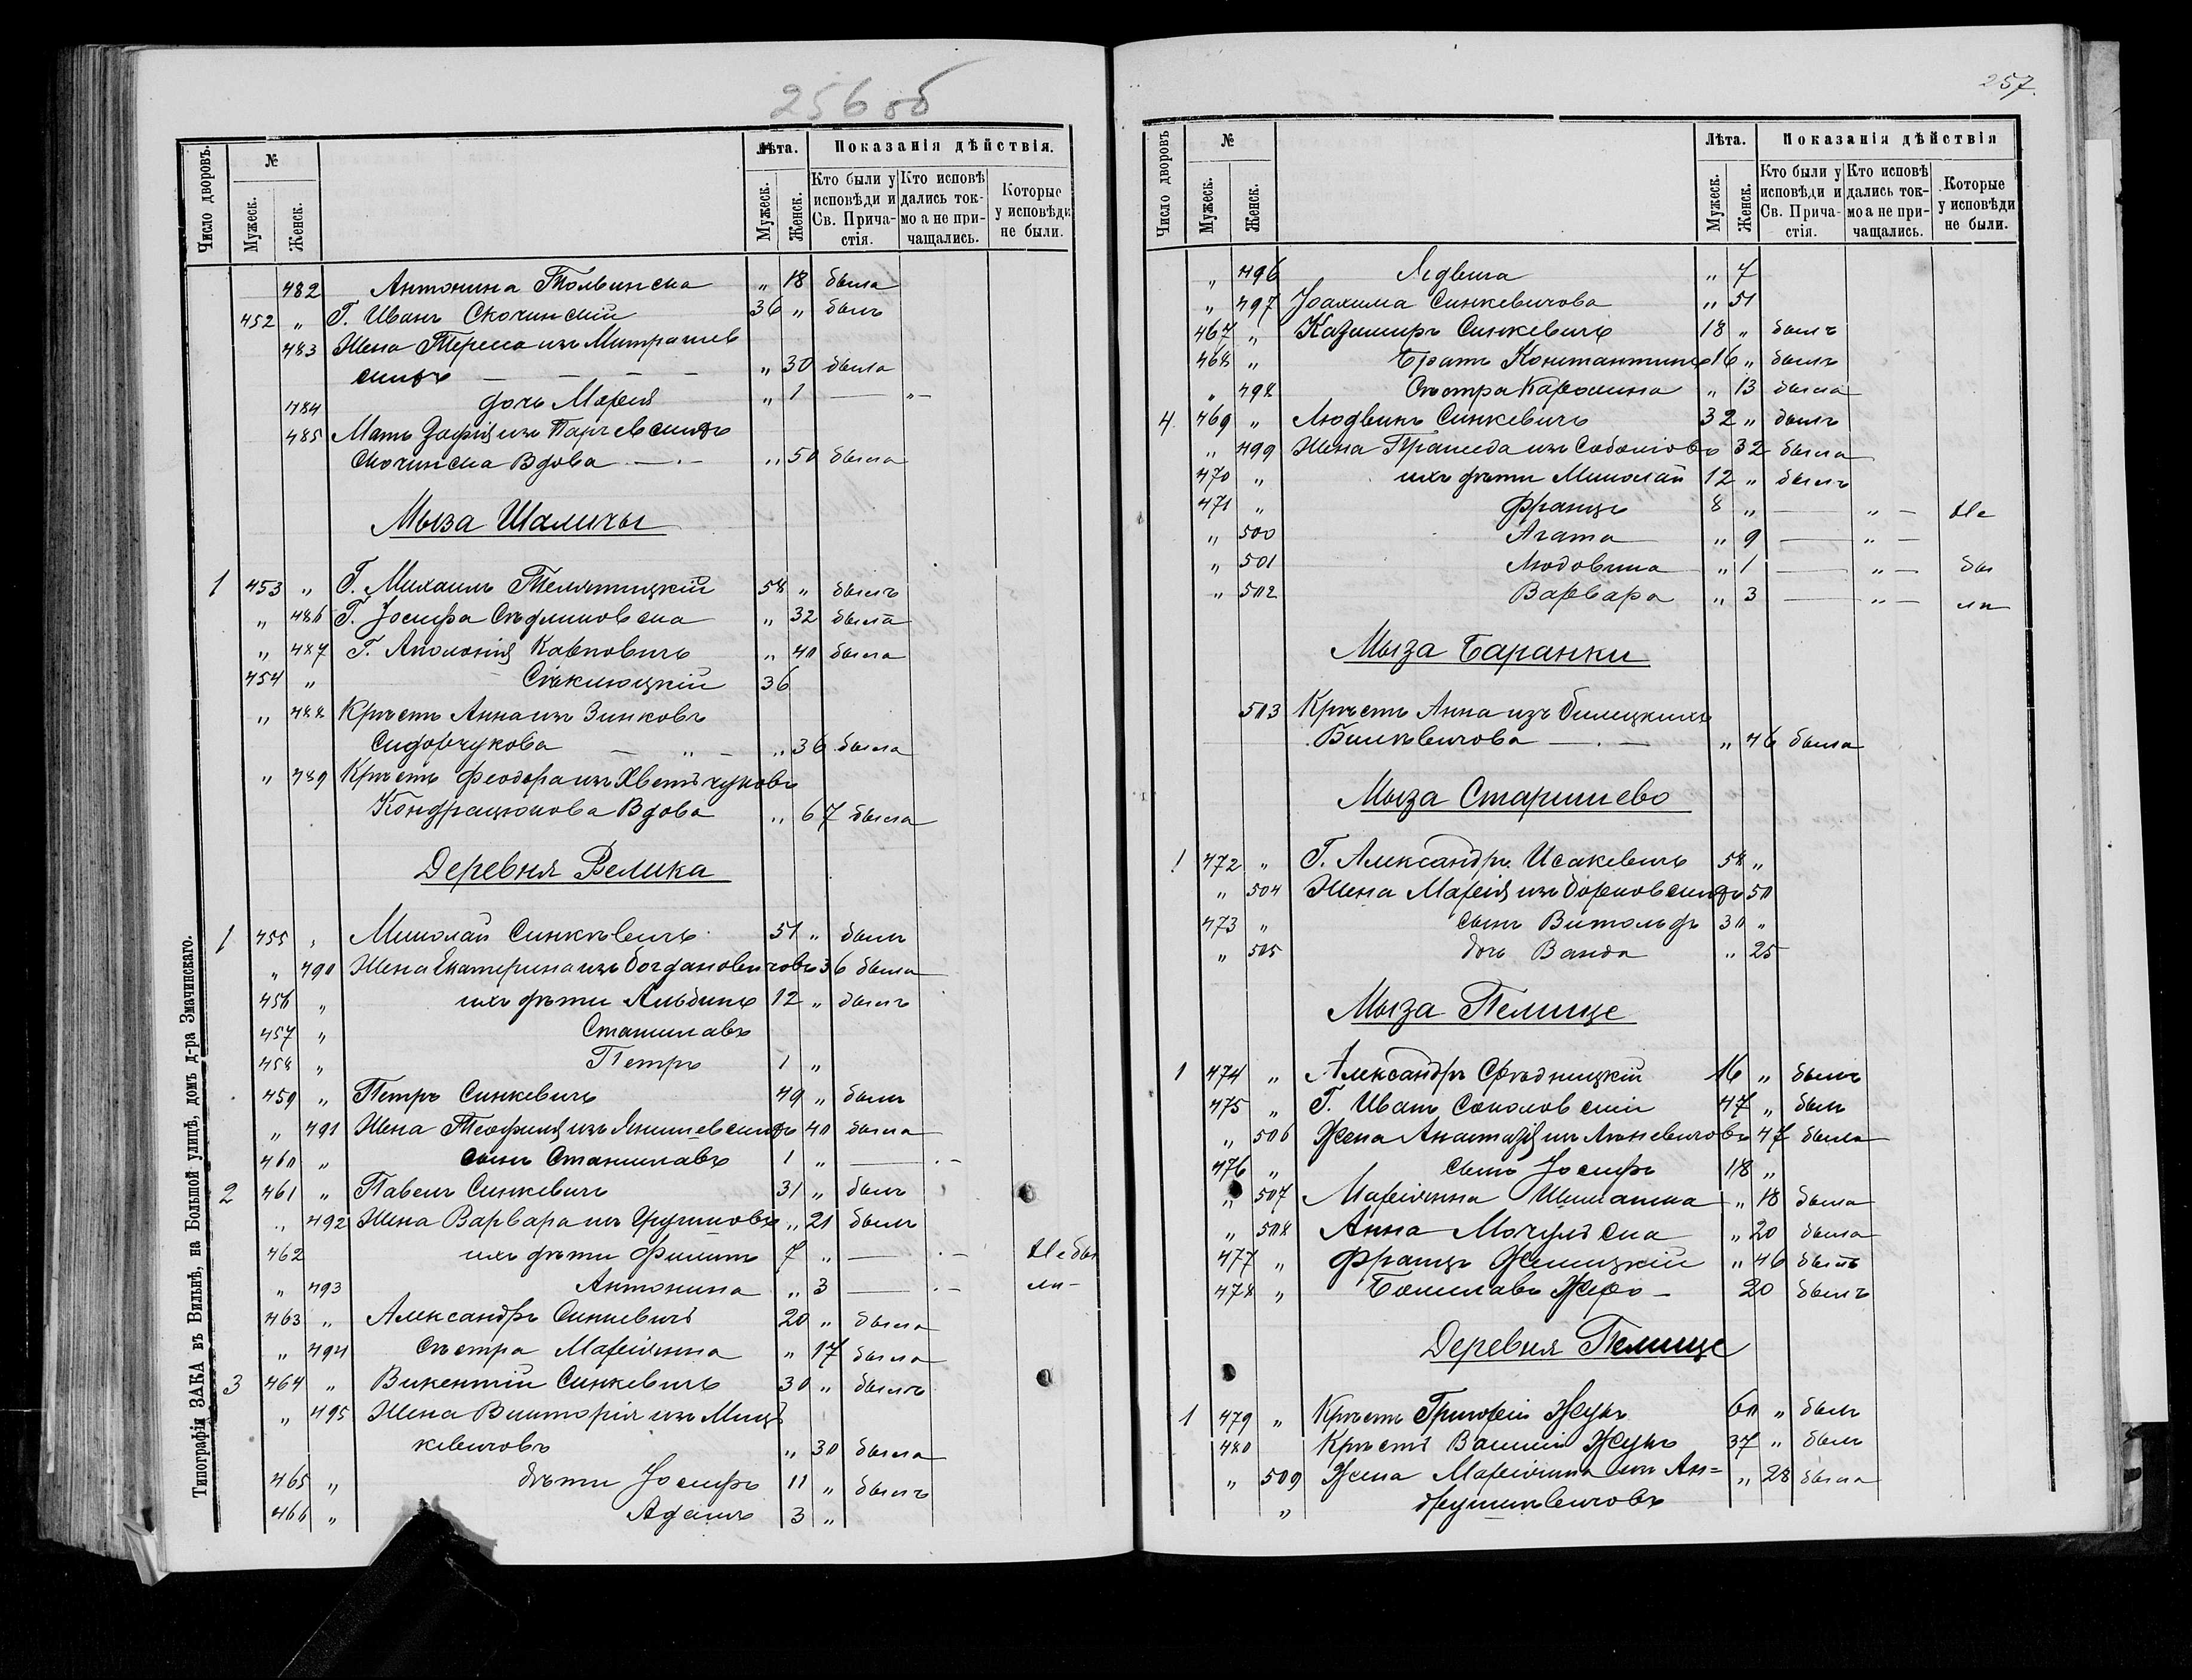 256 об
Число дворовъ.
№
Мужеск.
Женск.
Лѣта.
Мужеск.
Женск.
Показанія дѣйствія.
Кто были у исповѣди и Св. Прича-стія.
Кто исповѣ дались ток-мо а не при-чащались.
Которые у исповѣди не были.
482 Антонина Тольвинска " 18 была
452 " Г. Иванъ Скочинскій 36 " былъ
483 Жена Тереса изъ Митрашев
скихъ — — — — " 30 была
484 дочь Марія " 1 — " —
485 Мать Зофія изъ Парчевскихъ
Скочинска Вдова — . — " 50 была
Мыза Шаличы
1 453 " Г. Михаилъ Телятицкій 58 " былъ
" 486 Г. Іосифа Съдликовска " 32 была
" 487 Г. Аполонія Карповичъ " 40 была
454 " Стъклюцкій 36
" 488 Кръстъ Анна изъ Зинковъ
Сидорчукова — " — " 36 была
" 489 Кръстъ Феодора изъ Хветъчуковъ
Кондрацюкова Вдова " 67 была
Деревня Велика
1 455 " Миколай Синкѣвичъ 51 " былъ
" 490 Жена Екатерина изъ Богдановичовъ 36 была
456 " ихъ дѣти Альбинъ 12 " былъ
457 " Станиславъ
458 " Петръ 1 "
459 " Петръ Синкевичъ 49 " былъ
" 491 Жена Теофиля изъ Янишевскихъ 40 была
460 " сынъ Станиславъ 1 " — . —
2 461 " Павелъ Синкевичъ 31 " былъ
" 492 Жена Варвара изъ " 21 былъ
462 ихъ дѣти Филипъ 7 " — . — Не бы
" 493 Антонина " 3 — . — ли -
463 " Александръ Синкевичъ 20 " была
" 494 Състра Маріянна " 17 была
3 464 " Викентій Синкевичъ 30 " былъ
" 495 Жена Викторія изъ Мицъ
кевичовъ " 30 была
465 " дѣти Іосифъ 11 " былъ
466 " Адамъ 3 "
Типографія ЗАКА въ Вильнѣ, на Большой улицѣ, домъ д-ра Змачинскаго.
257.
Число дворовъ
№
Мужеск.
Женск.
Лѣта.
Мужеск.
Женск.
Показанія дѣйствія
Кто были у исповѣди и Св. Прича-стія.
Кто исповѣ дались ток-мо а не при-чащались.
Которые у исповѣди не были.
" 496 Ядвига " 7
" 497 Іоахима Синкевичова " 51
467 " Казимиръ Синкевичъ 18 " былъ
468 " Братъ Константинъ 16 " былъ
" 498 Състра Каролина " 13 была
4 469 " Людвикъ Синкевичъ 32 " былъ
" 499 Жена изъ 32 была
470 " ихъ дѣти Миколай 12 " былъ
471 " Францъ 8 " — " — Не
" 500 Агата " 9 — " —
" 501 Людовика " 1 — " — бы
" 502 Варвара " 3 — " — ли
Мыза Баранки
503 Кръстъ Анна изъ Билецкихъ
Вилкъвичова — . — " 46 была
Мыза Старишево
1 472 " Г. Александръ Исакевичъ 58 "
" 504 Жена Марія изъ Борковскихъ 50
473 " сынъ Витольдъ 30 "
" 505 дочь Ванда " 25
Мыза Пелище
1 474 " Александръ Сръдницкій 16 " былъ
475 " Г. Иванъ Соколовскій 47 " былъ
" 506 Жена Анастазія изъ 47 была
476 " сынъ Іосифъ 18 "
" 507 Маріянна " 18 была
" 508 Анна Мочульска " 20 была
477 " Францъ " 46 былъ
478 " Болиславъ Жеро - 20 былъ
Деревня Пелище
1 479 " Кръстъ Григорій Жукъ 60 " былъ
480 Кръстъ Василій Жукъ 37 " былъ
" 509 Жена Маріянна изъ Ан= " 28 была
" друшкѣвичовъ